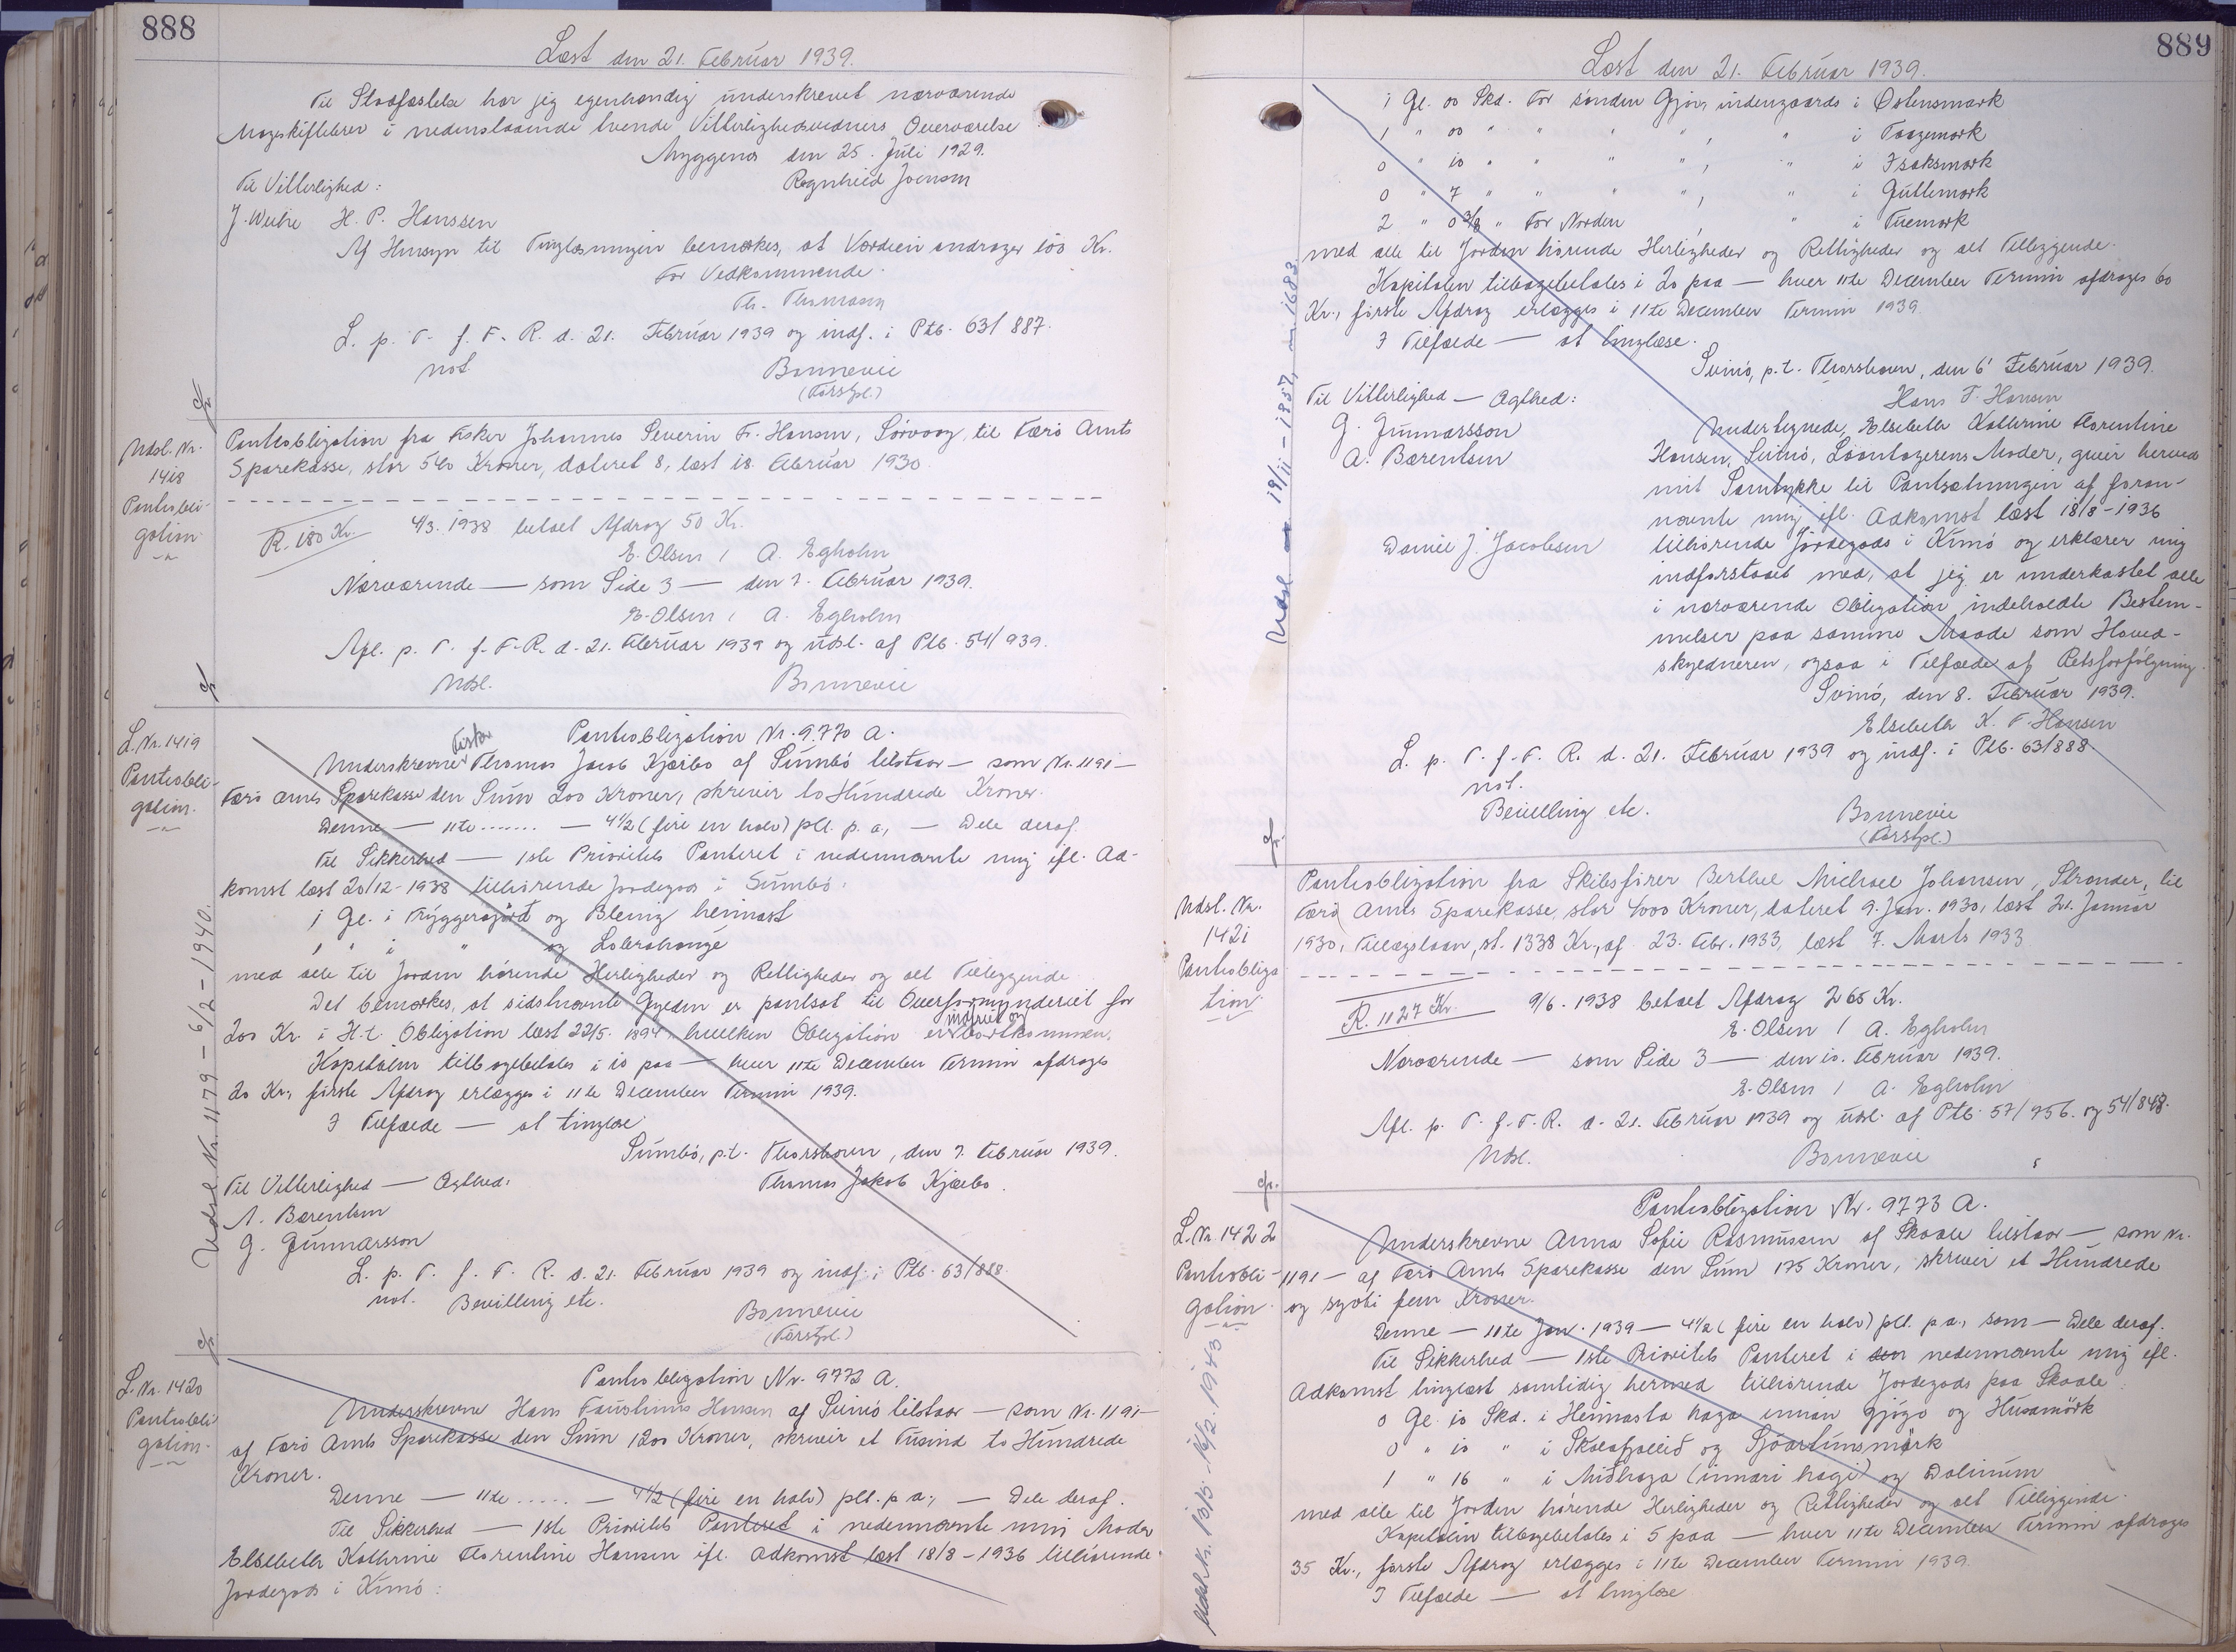 888
Læst den 21. Februar 1939.
Til Stadfæstelse har jeg egenhændig underskrevet nærværende
Mageskiftebrev i nedenstaaende tvende Vitterlighedsvidners Overværelse
Myggenæs den 25. Juli 1929.
Til Vitterlighed: Ragnheid Joensen
J. Weihe H. P. Hanssen
Af Hensyn til Tinglæsningen bemærkes, at Værdien andrager 100 Kr.
For Vedkommende.
Th. Thomasen
L. p. T. f. F. R. d. 21. Februar 1939 og indf. i Ptb. 63/887.
not Bonnevie
(Forstpl.)
Udsl. Nr.
1418
Pantobli-
gation
Pantobligation fra Fisker Johannes Severin Fr. Hansen, Sörvaag, til Færö Amts
Sparekasse, stor 540 Kroner, dateret 8, læst 18. Februar 1930.
R. 180 Kr. 4/3. 1938 betalt Afdrag 50 Kr.
E. Olsen / A. Egholm
Nærværende — som Side 3 — den 7. Februar 1939.
E. Olsen / A. Egholm
Afl. p. T. f. F. R. d. 21. Februar 1939 og udsl. af Ptb. 54/939.
Udsl. Bonnevie
L. Nr. 1419
Pantobli-
gation.
Pantobligation Nr. 9770 A.
Fisker
Underskrevne Thomas Jacob Kjærbo af Sumbö tilstaar — som Nr. 1191 —
Færö Amts Sparekasse den Sum 200 Kroner, skriver to Hundrede Kroner.
Denne — 11te ....... — 4½ (fire en halv) pCt. p. a., — Dele deraf.
Til Sikkerhed — 1ste Prioritets Panteret i nedennævnte mig ifl. Ad-
komst læst 20/12-1938 tilhörende Jordegods i Sumbö:
1 Gl. i Tryggersgjörd og Bleing heimast
1 " i " og Lobrahange
med alle til Jorden hörende Herligheder og Rettigheder og alt Tilliggende.
Det bemærkes, at sidstnævnte Gylden er pantsat til Overformynderiet for
indfriet og
200 Kr. i H.t. Obligation læst 22/5. 1894, hvilken Obligation er bortkommen.
Kapitalen tilbagebetales i 10 paa — hver 11te December Termin afdrages
20 Kr., förste Afdrag erlægges i 11te December Termin 1939.
I Tilfælde — at tinglæse
Sumbö, p.t. Thorshavn, den 7. Februar 1939.
Til Vitterlighed — Ægthed: Thomas Jakob Kjærbo.
A. Bærentsen
G. Gunnarsson
L. p. T. f. F. R. d. 21. Februar 1939 og indf. i Ptb. 63/888.
not. Bevilling etc. Bonnevie
(Forstpl.)
Udsl. Nr. 1179 - 6/2 - 1940.
L. Nr. 1420
Pantobli
gation.
Pantobligation Nr. 9772 A.
Underskrevne Hans Faustinus Hansen af Svinö tilstaar — som Nr. 1191 —
af Færö Amts Sparekasse den Sum 1200 Kroner, skriver et Tusind to Hundrede
Kroner.
Denne — 11te ..... — 4½ (fire en halv) pCt. p a., — Dele deraf.
Til Sikkerhed — 1ste Prioritets Panteret i nedennævnte min Moder
Elsebeth Kathrine Florentine Hansen ifl. Adkomst læst 18/8-1936 tilhörende
Jordegods i Kunö:
889
Læst den 21. Februar 1939.
1 Gl. 00 Skd. For sönden Gjörs indengaards i Östensmark
1 " 00 " " " " , " i Faagemark
0 " 10 " " " " , " i Isaksmark
0 " 7 " " " " , " i Guttemark
2 " 0 3/8 " For Norden , " i Tuemark
med alle til Jorden hörende Herligheder og Rettigheder og alt Tilliggende.
Kapitalen tilbagebetales i 20 paa — hver 11te December Termin afdrages 60
Kr., förste Afdrag erlægges i 11te December Termin 1939.
I Tilfælde — at tinglæse.
Svinö, p.t. Thorshavn, den 6' Februar 1939.
Til Vitterlighed — Ægthed: Hans F. Hansen
G. Gunnarsson
A. Bærentsen
Daniel J. Jacobsen
Undertegnede, Elsebeth Kathrine Florentine
Hansen, Svinö, Laantagerens Moder, giver herved
mit Samtykke til Pantsætningen af foran-
nævnte mig ifl. Adkomst læst 18/8-1936
tilhörende Jordegods i Kunö og erklærer mig
indforstaaet med, at jeg er underkastet alle
i nærværende Obligation indeholdte Bestem-
melser paa samme Maade som Hoved-
skyldneren, ogsaa i Tilfælde af Retsforfölgning.
Svinö, den 8. Februar 1939.
Elsebeth K. F. Hansen
L. p. T. f. F. R. d. 21. Februar 1939 og indf. i Ptb. 63/888.
not.
Bevilling etc. Bonnevie
(Forstpl.)
19/11 - 1957
Udsl. Nr.
1421
Pantobliga
tion.
Pantobligation fra Skibsförer Berthel Michael Johansen, Strander, til
Færö Amts Sparekasse, stor 4000 Kroner, dateret 9. Jan. 1930, læst 21. Januar
1930, Tillægslaan, st. 1338 Kr., af 23. Febr. 1933, læst 7. Marts 1933.
R. 1127 Kr. 9/6. 1938 betalt Afdrag 265 Kr.
E. Olsen / A. Egholm
Nærværende — som Side 3 — den 10. Februar 1939.
E. Olsen / A. Egholm
Afl. p. T. f. F. R. d. 21. Februar 1939 og udsl. af Ptb. 57/756. og 54/848.
Udsl. Bonnevie
L. Nr. 1422
Pantobli-
gation.
Pantobligation Nr. 9773 A.
Underskrevne Anna Sofie Rasmussen af Skaale tilstaar — som Nr.
1191 — af Færö Amts Sparekasse den Sum 175 Kroner, skriver et Hundrede
og syvti fem Kroner.
Denne — 11te Jan. 1939 — 4½ (fire en halv) pCt. p a., som — Dele deraf.
Til Sikkerhed — 1ste Prioritets Panteret i den nedennævnte mig ifl.
Adkomst tinglæst samtidig hermed tilhörende Jordegods paa Skaale:
0 Gl. 10 Skd. i Heimasta haga innan gjógv og Húsamörk
0 " 10 " i Skálafjallið og Sjóartúnsmörk
1 " 16 " i Miðhaga (innari hagi) og Dalinum
med alle til Jorden hörende Herligheder og Rettigheder og alt Tilliggende.
Kapitalen tilbagebetales i 5 paa — hver 11te December Termin afdrages
35 Kr., förste Afdrag erlægges i 11te December Termin 1939.
I Tilfælde — at tinglæse
Udsl. Nr. 1313. 16/2. 1943